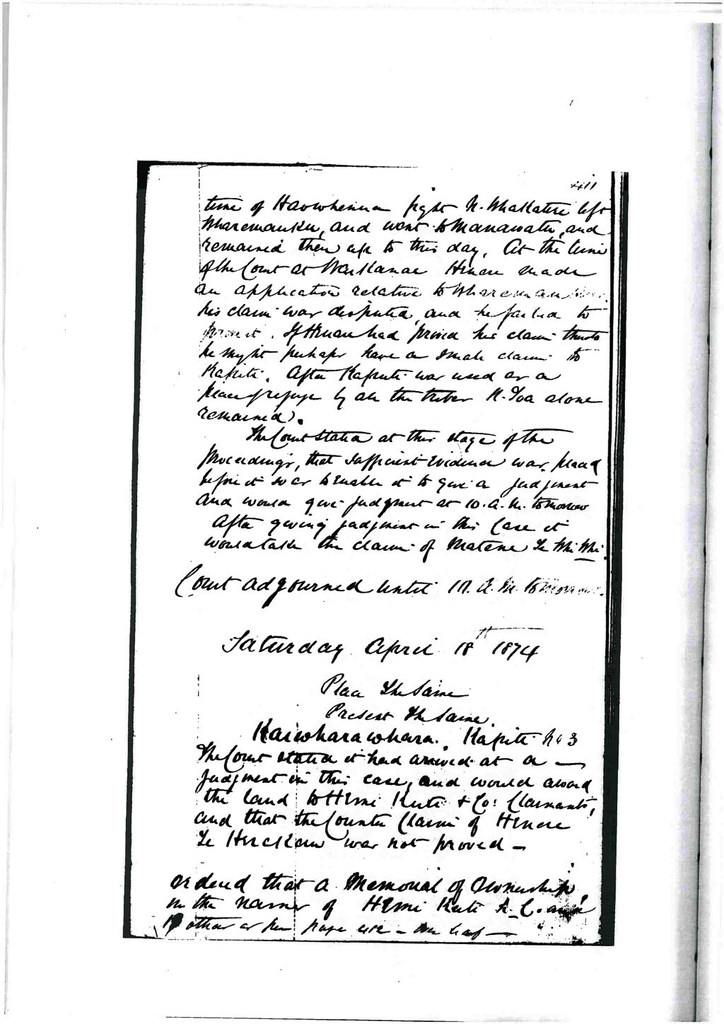 411
time of Haowhenua fight N. Whakatere left
Wharemauku, and went to Manawatu, and
remained there up to this day. At the time
of the Court at Waikanae Henere made
an application relative to Wharemauku
his claim was disputed, and he failed to
prove it. If Henere had proved his claim there
he might perhaps have a small claim to
Kapiti. After Kapiti was used as a
place of refuge by all the tribes N. Toa alone
remained).
The Court stated at this stage of the
proceedings, that sufficient evidence was placed
before it so as to enable it to give a judgment
and would give judgment at 10. A. M. tomorrow
After giving judgment in this case it
would take the claim of Matene Te Whi Whi.
Court adjourned until 10. A. M. tomorrow.
Saturday April 18th 1874
Place The Same
Present The Same
Kaiwharawhara. Kapiti No 3
The Court stated it had arrived at a —
judgment in this case, and would award
the land to Hemi Kuti & Co: Claimants,
and that the Counter Claim of Henere
Te Herekau was not proved —
Ordered that a Memorial of Ownership
in the names of Hemi Kuti and
others as per page 412 — one leaf —